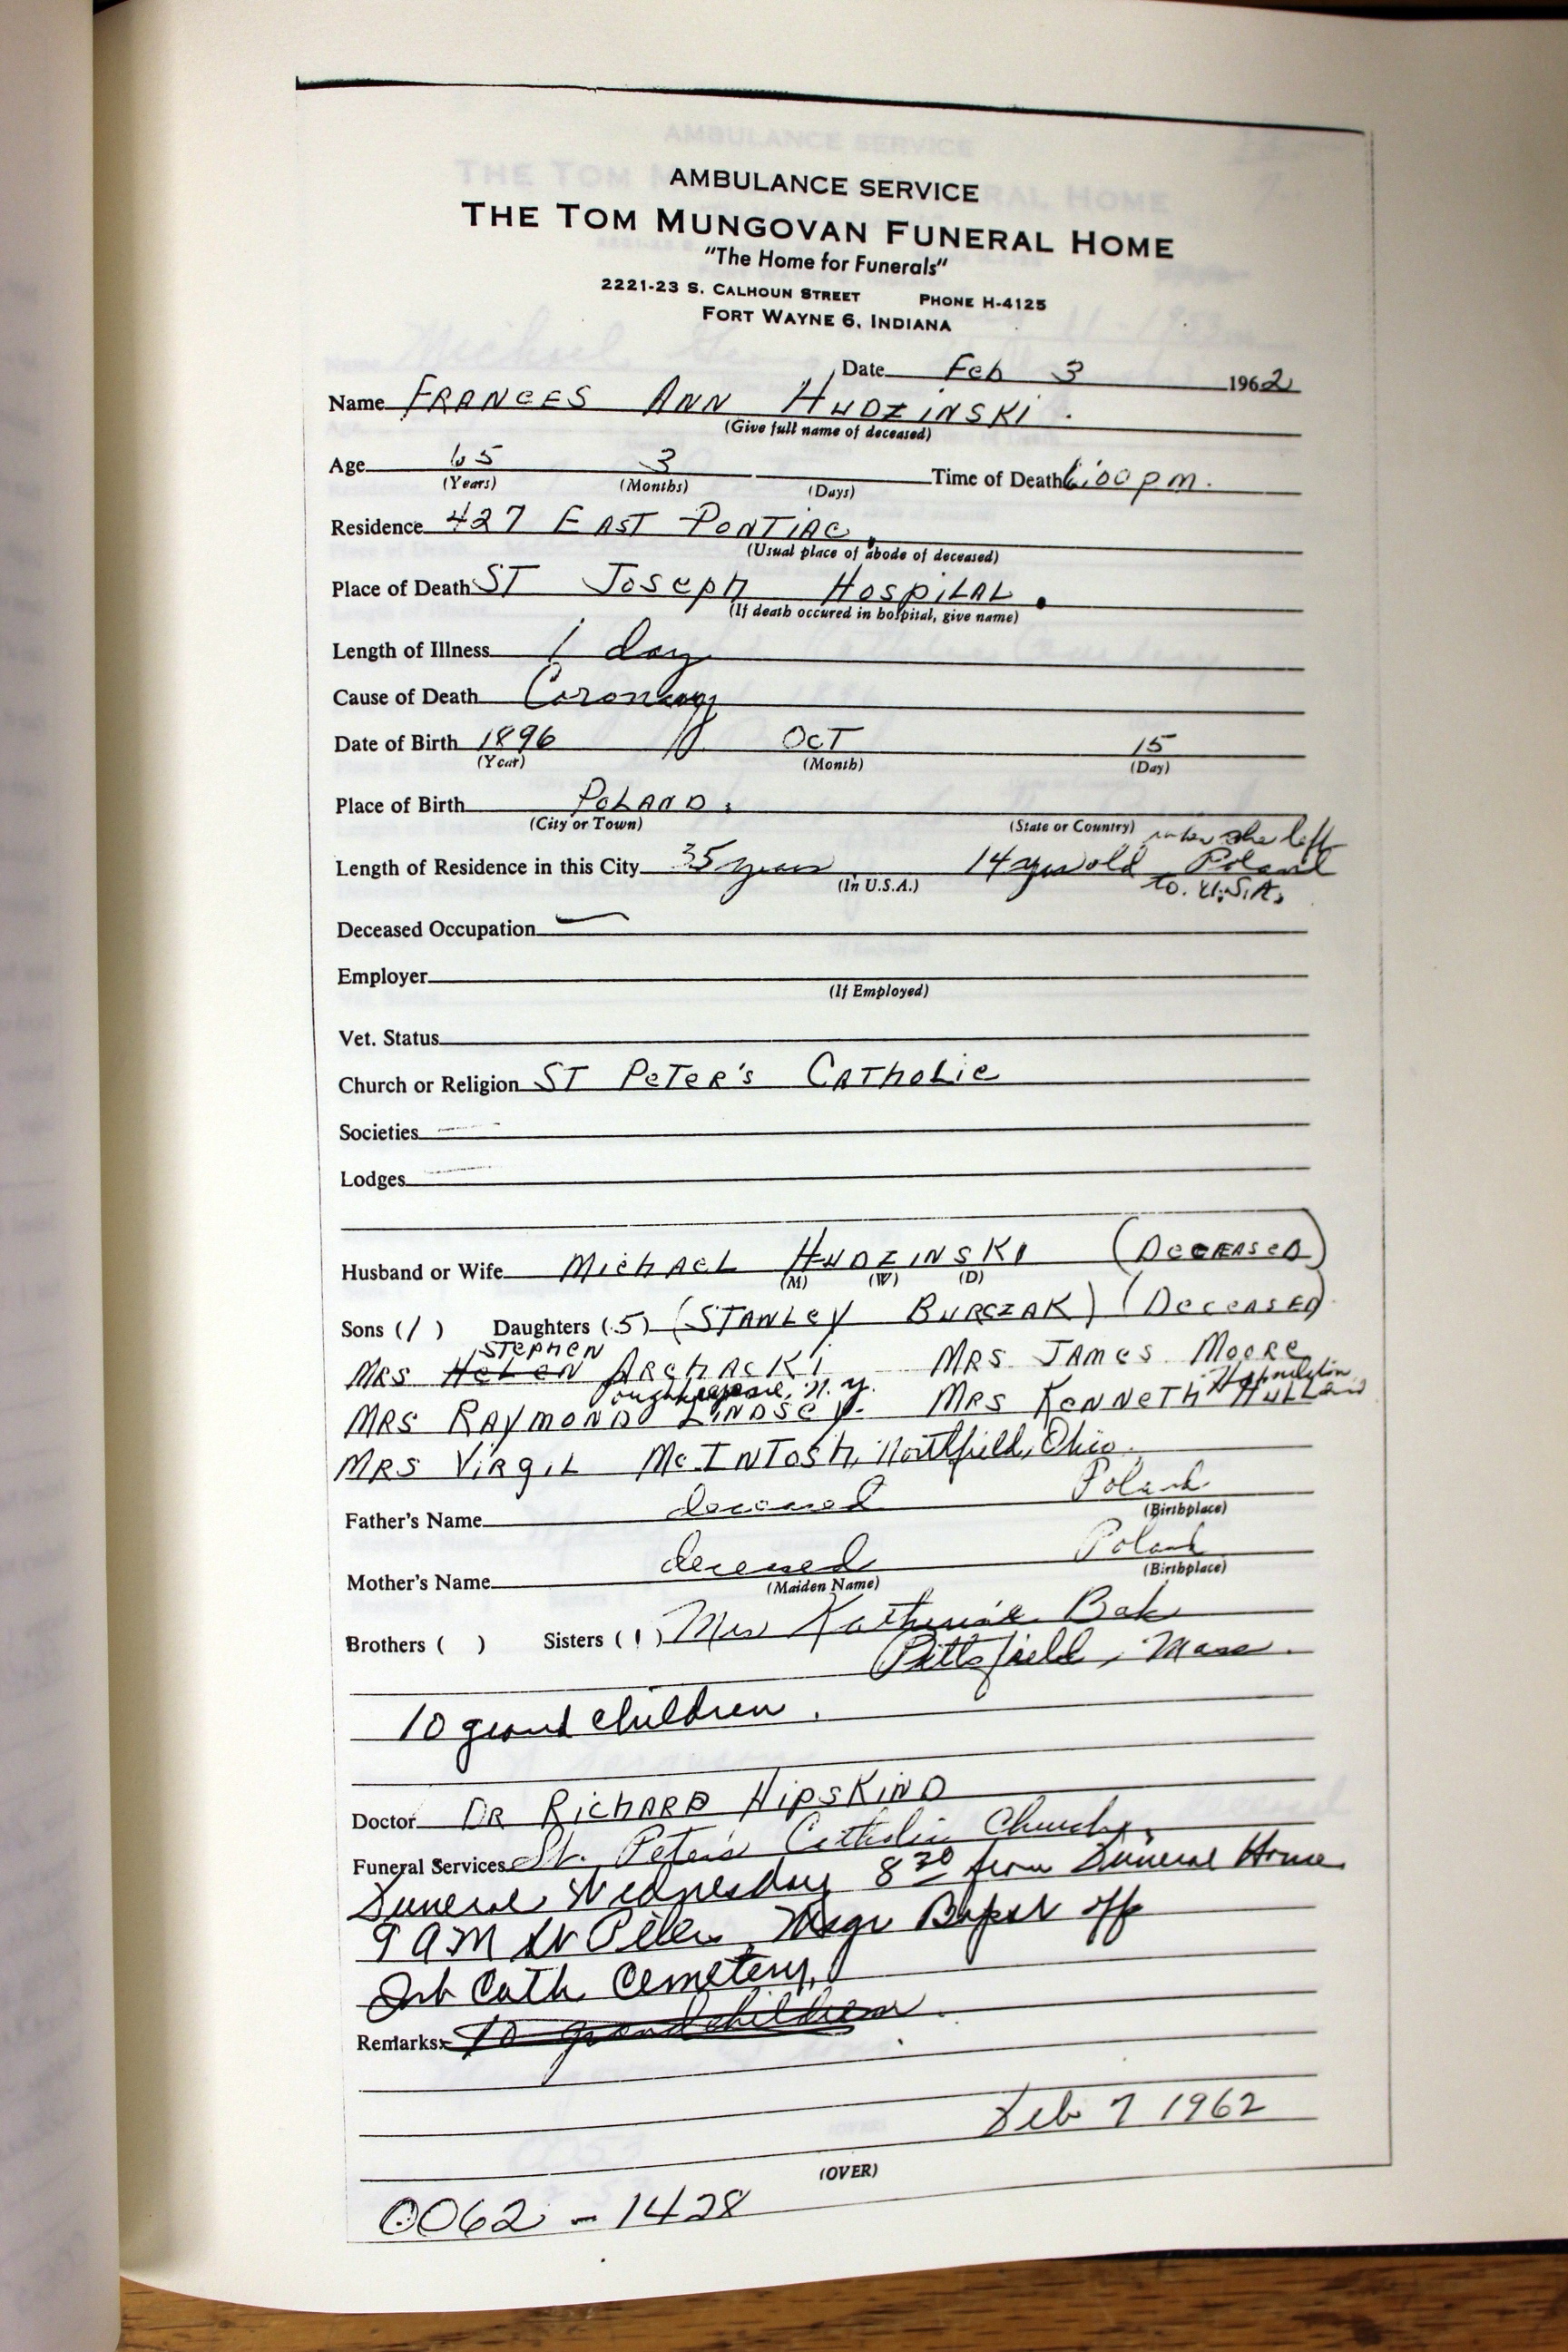 AMBULANCE SERVICE
THE TOM MUNGOVAN FUNERAL HOME
"The Home for Funerals"
2221-23 S. CALHOUN STREET PHONE H-4125
FORT WAYNE 6, INDIANA
Date Feb 3 1962
Name FRANCES ANN HUDZINSKI.
(Give full name of deceased)
Age 65 3 Time of Death 6:00 pm.
(Years) (Months) (Days)
Residence 427 EAST PONTIAC.
(Usual place of abode of deceased)
Place of Death ST JOSEPH HOSPITAL.
(If death occured in hospital, give name)
Length of Illness 1 day
Cause of Death Coronary
Date of Birth 1896 OCT 15
(Year) (Month) (Day)
Place of Birth POLAND.
(City or Town) (State or Country) when she left
Length of Residence in this City 35 years 14 years old Poland
(In U.S.A.) to. U.S.A.
Deceased Occupation
Employer
(If Employed)
Vet. Status
Church or Religion ST PETER'S CATHOLIC
Societies
Lodges
Husband or Wife MICHAEL HUDZINSKI (DECEASED)
(M) (W) (D)
Sons (1) Daughters (5) (STANLEY BURCZAK) (DECEASED)
STEPHEN
MRS HELEN ARCHACKI MRS JAMES MOORE
N.Y.
MRS RAYMOND LINDSEY. MRS KENNETH
MRS VIRGIL McINTOSH, Northfield, Ohio.
Father's Name deceased Poland
(Birthplace)
Mother's Name deceased Poland
(Maiden Name) (Birthplace)
Brothers ( ) Sisters (1) Mrs Katherine Bak
Pittsfield, Mass.
10 grand children.
Doctor DR RICHARD HIPSKIND
Funeral Services St. Peter's Catholic Church.
Funeral Wednesday 8 30 from Funeral Home
9 AM St Peters, Msgr Bapst off
Int Cath Cemetery,
Remarks: 10 grandchildren.
Feb 7 1962
(OVER)
0062 - 1428